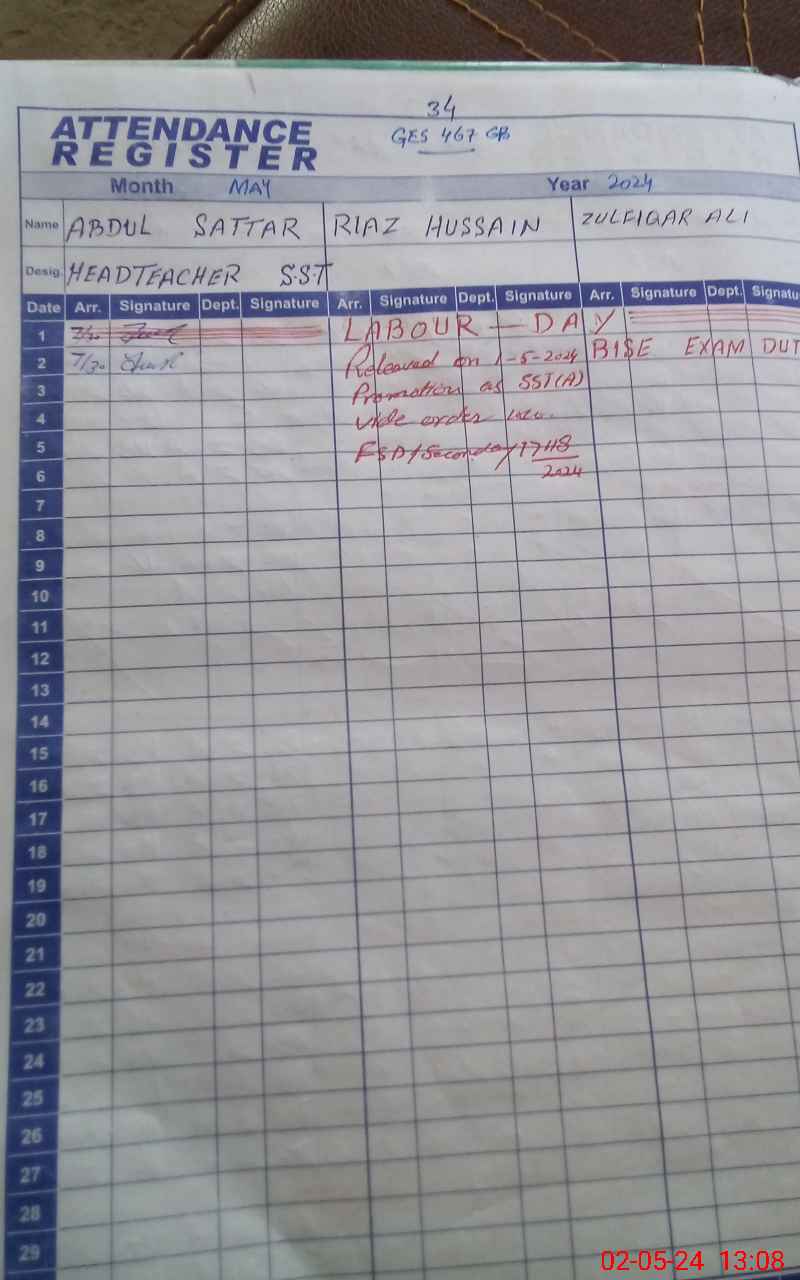 34
ATTENDANCE
REGISTER
GES 467 GB
Month MAY Year 2024
Name ABDUL SATTAR RIAZ HUSSAIN ZULFIQAR ALI
Desig. HEADTEACHER S.S.T
Date Arr. Signature Dept. Signature Arr. Signature Dept. Signature Arr. Signature Dept. Signatu
1 7/30 LABOUR - DAY
2 7/30 Released on 1-5-2024 BISE EXAM DUT
3 Promotion as SST(A)
4 vide order no.
5 FSD/Secondary/17418
6 2024
7
8
9
10
11
12
13
14
15
16
17
18
19
20
21
22
23
24
25
26
27
28
29
02-05-24 13:08